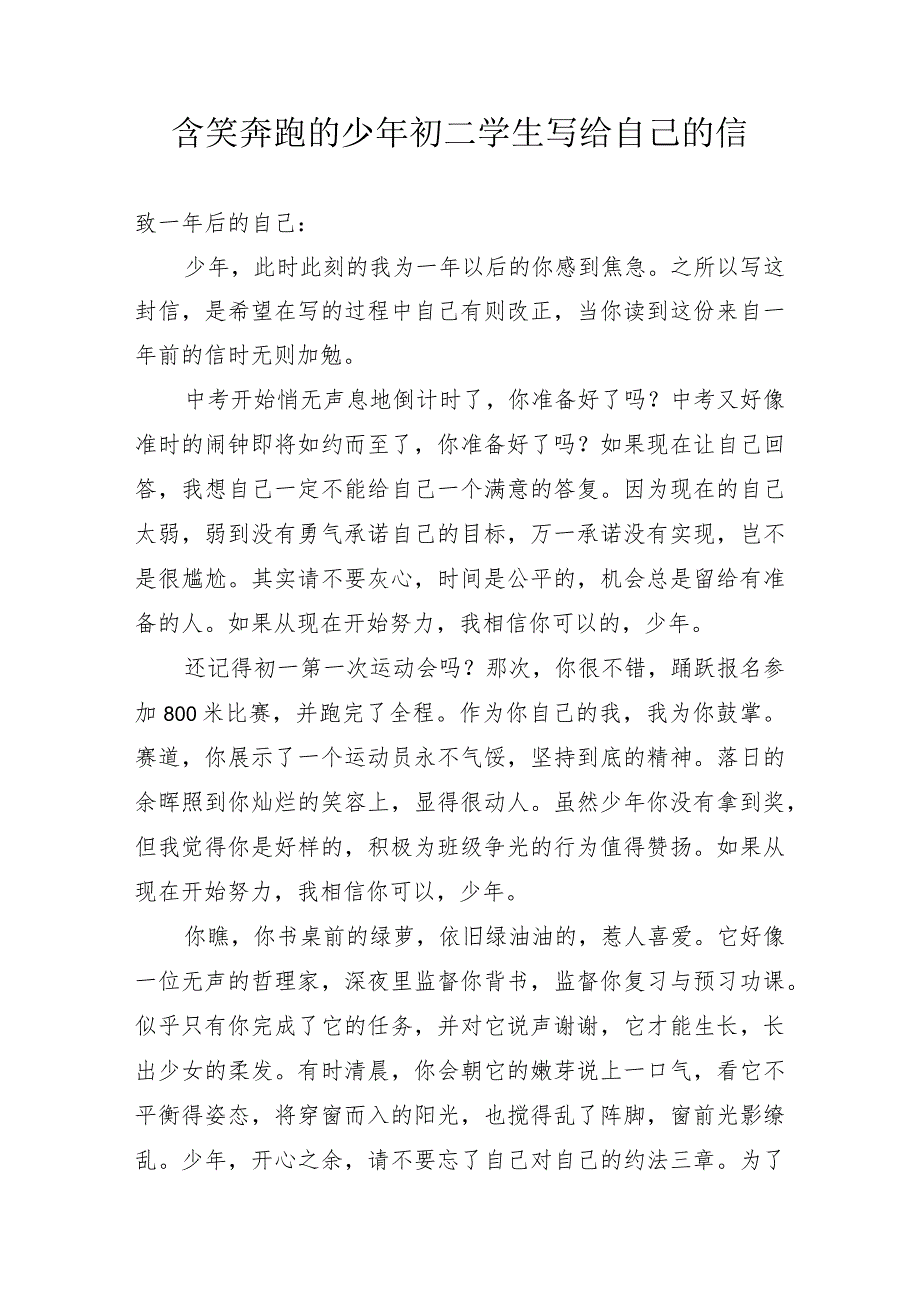 含笑奔跑的少年初二学生写给自己的信
致一年后的自己：
少年，此时此刻的我为一年以后的你感到焦急。之所以写这
封信，是希望在写的过程中自己有则改正，当你读到这份来自一
年前的信时无则加勉。
中考开始悄无声息地倒计时了，你准备好了吗？中考又好像
准时的闹钟即将如约而至了，你准备好了吗？如果现在让自己回
答，我想自己一定不能给自己一个满意的答复。因为现在的自己
太弱，弱到没有勇气承诺自己的目标，万一承诺没有实现，岂不
是很尴尬。其实请不要灰心，时间是公平的，机会总是留给有准
备的人。如果从现在开始努力，我相信你可以的，少年。
还记得初一第一次运动会吗？那次，你很不错，踊跃报名参
加 800 米比赛，并跑完了全程。作为你自己的我，我为你鼓掌。
赛道，你展示了一个运动员永不气馁，坚持到底的精神。落日的
余晖照到你灿烂的笑容上，显得很动人。虽然少年你没有拿到奖，
但我觉得你是好样的，积极为班级争光的行为值得赞扬。如果从
现在开始努力，我相信你可以，少年。
你瞧，你书桌前的绿萝，依旧绿油油的，惹人喜爱。它好像
一位无声的哲理家，深夜里监督你背书，监督你复习与预习功课。
似乎只有你完成了它的任务，并对它说声谢谢，它才能生长，长
出少女的柔发。有时清晨，你会朝它的嫩芽说上一口气，看它不
平衡得姿态，将穿窗而入的阳光，也搅得乱了阵脚，窗前光影缭
乱。少年，开心之余，请不要忘了自己对自己的约法三章。为了